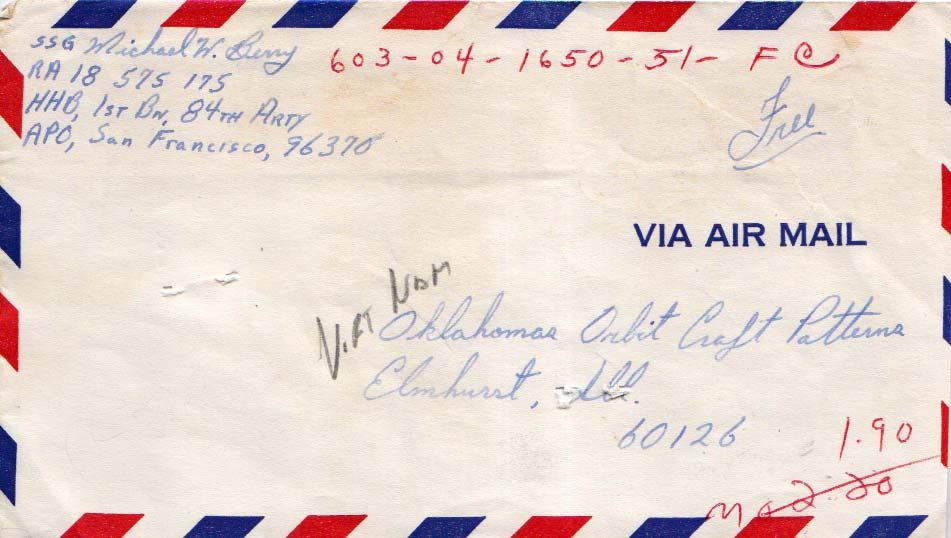 SSG Michael W. Berry
603-04-1650-51- FC
RA 18 575 175
HHB, 1ST BN, 84TH ARTY
APO, San Francisco, 96370
Free
VIA AIR MAIL
VIET NAM
Oklahoma Orbit Craft Patterns
Elmhurst, Ill.
60126
1.90
2.20